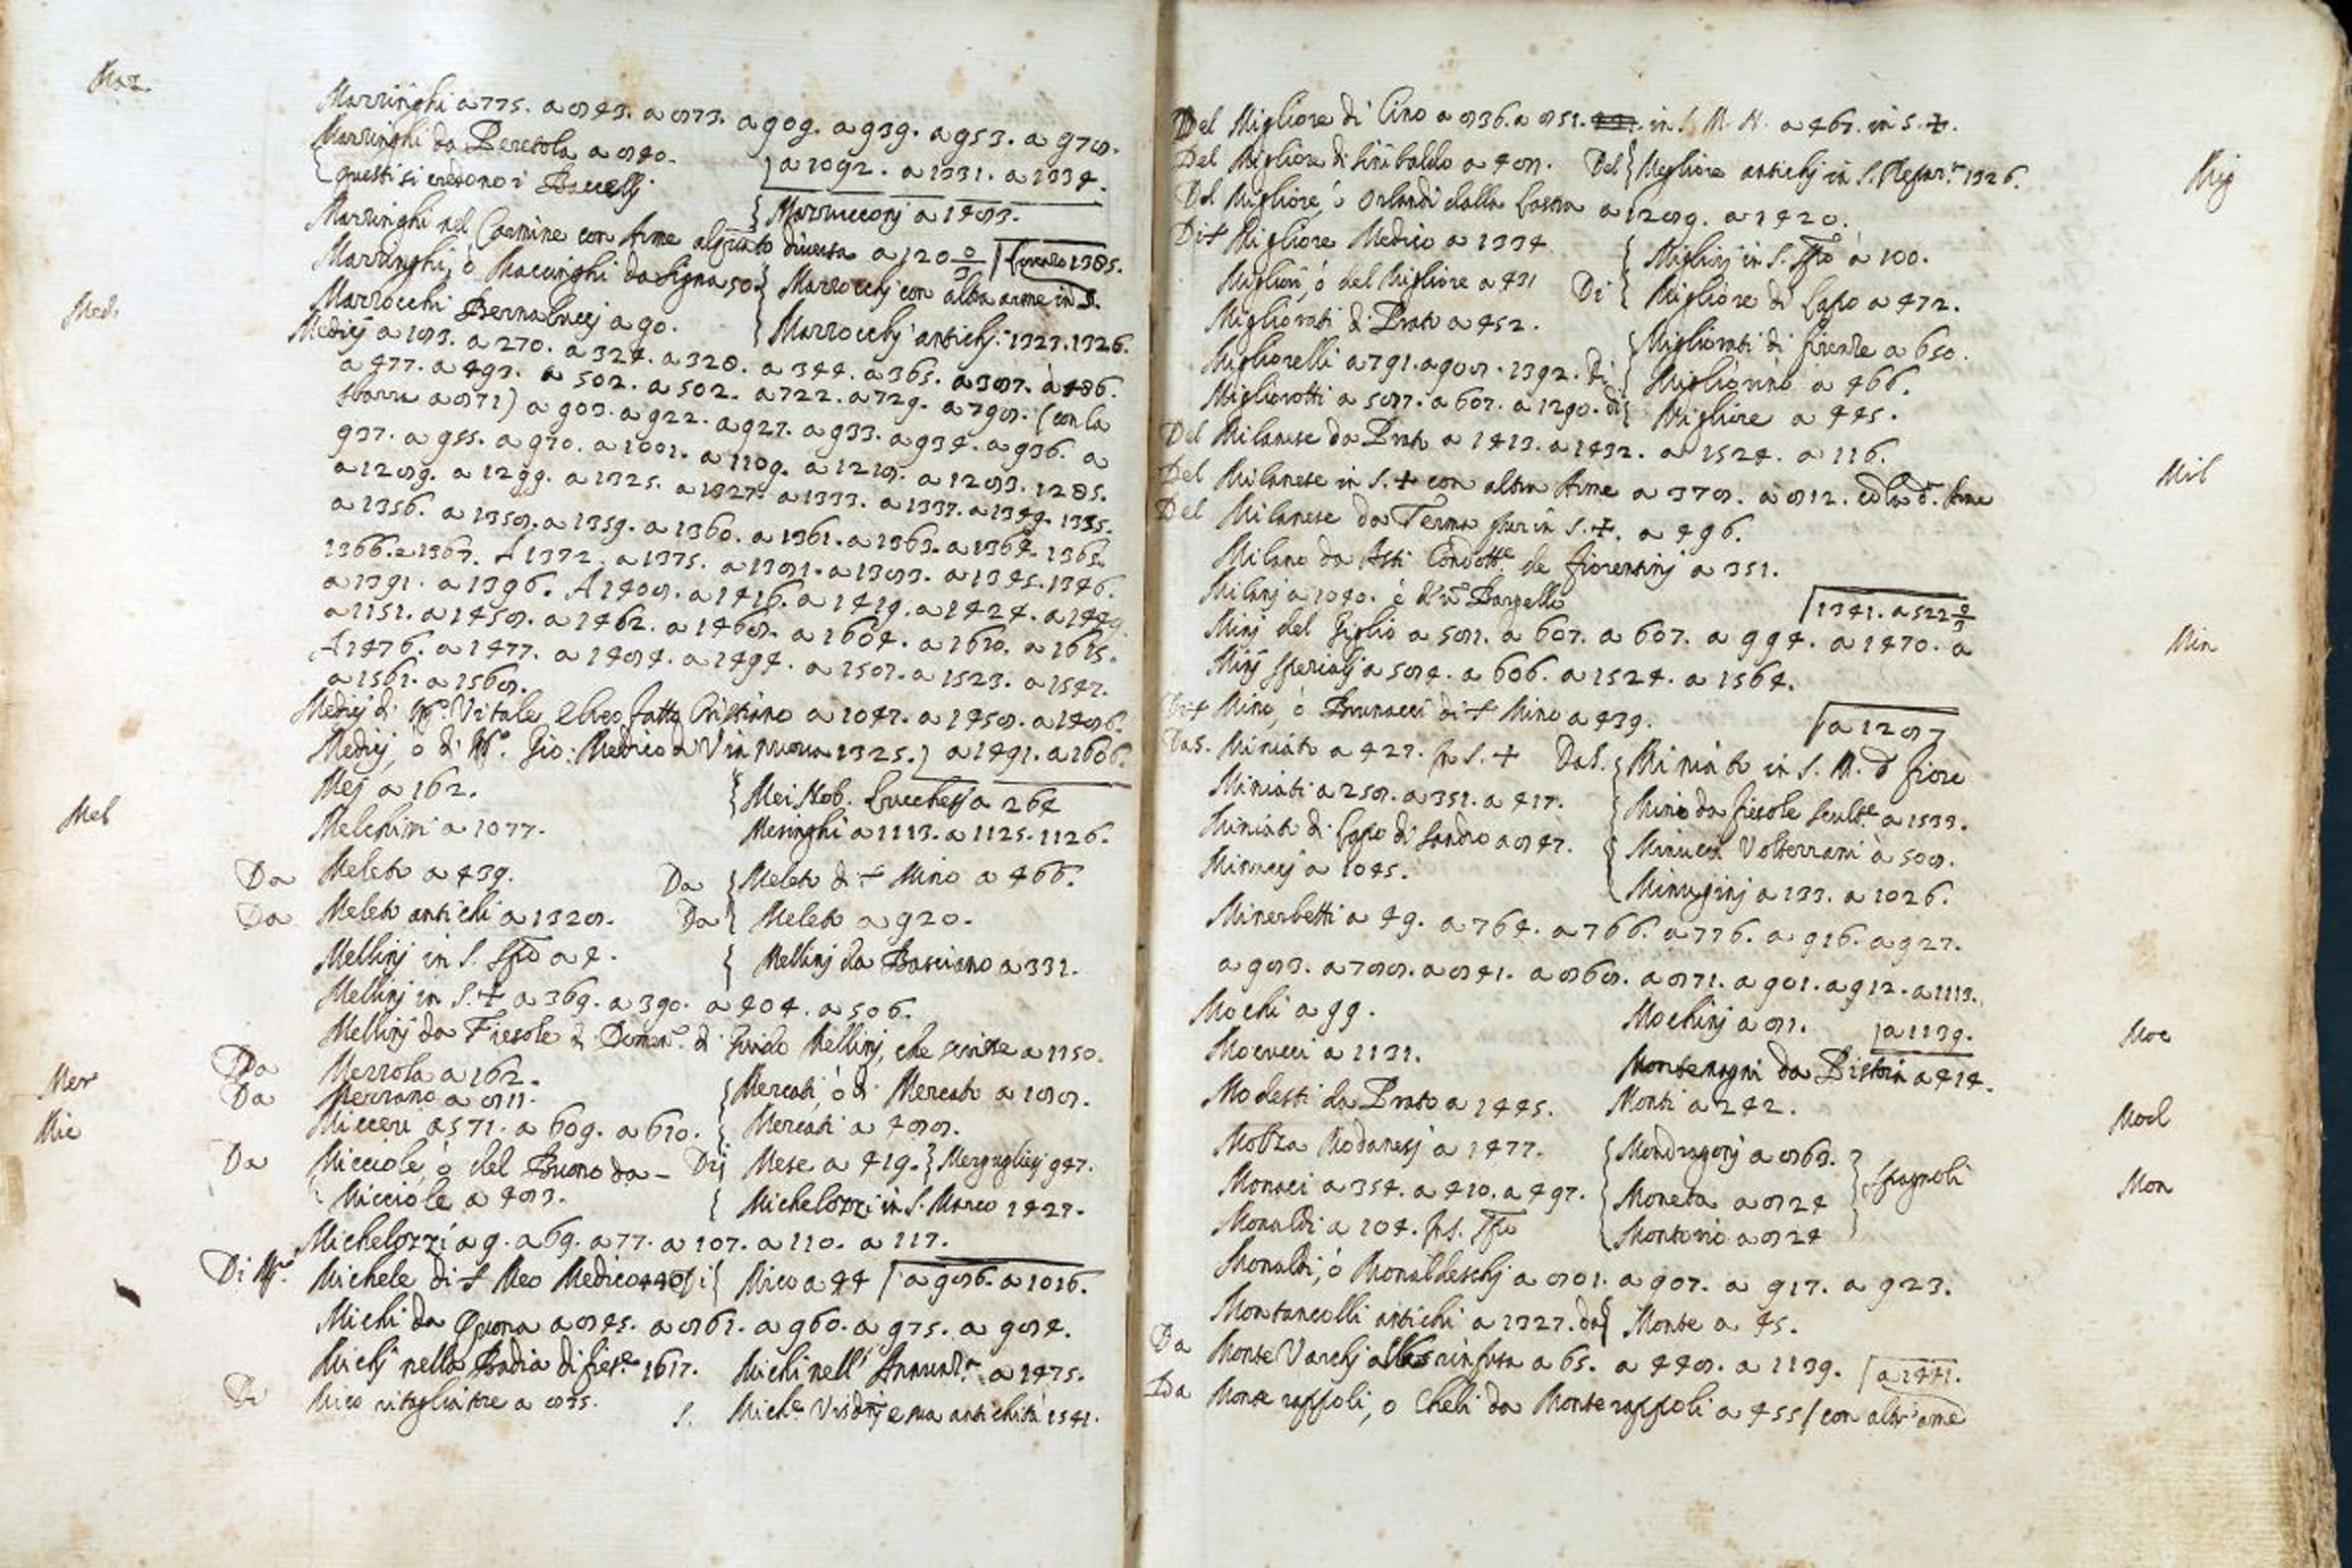 Maz.
Marringhi a 775. a 843. a 873. a 909. a 939. a 953. a 978.
Marringhi da Peretola a 840. a 1092. a 1331. a 1334.
questi si credono i Baccelli
Marruccorj a 1483.
Marringhi nel Carmine con Arme alquanto diversa a 120
Marringhi, ò da Signa 50. Marzocchj con altra arme in S.
Marzocchi Bernabuccj a 90. Marzocchj antichj. 1323. 1326.
Med.
Medicj a 183. a 270. a 324. a 328. a 344. a 365. a 387. a 486.
a 477. a 493. a 502. a 502. a 722. a 729. a 798. (con la
sbarra a 871) a 903. a 922. a 927. a 933. a 934. a 936. a
937. a 955. a 970. a 1001. a 1109. a 1218. a 1283. 1285.
a 1289. a 1299. a 1325. a 1327. a 1333. a 1337. a 1349. 1355.
a 1356. a 1358. a 1359. a 1360. a 1361. a 1363. a 1364. 1365.
1366. e 1367. A 1372. a 1375. a 1381. a 1383. a 1345. 1346.
a 1391. a 1396. A 1408. a 1416. a 1419. a 1424. a 1449.
a 1151. a 1458. a 1462. a 1468. a 1604. a 1610. a 1615.
A 1476. a 1477. a 1484. a 1494. a 1507. a 1523. a 1547.
a 1561. a 1568.
Medicj di Mº. Vitale Ebreo fatto Cristiano a 1047. a 1458. a 1486.
Medicj, ò di Mº. Gio: Medico d Via nuova 1325. a 1491. a 1606.
Mej a 162. Mei Nob. Lucchesj a 264
Mel
Melchini a 1077. Meringhi a 1113. a 1125. 1126.
Da Meleto a 439. Da Meleto di + Mino a 466.
Da Meleto antichi a 1328. Da Meleto a 920.
Mellinj in S. Spo a 4. Mellinj da Basciano a 331.
Mellinj in S. + a 369. a 390. a 404. a 506.
Mellinj da Fiesole d Domen.º d Guido Mellinj, che scrisse a 1150.
Mer
Da Merrola a 162. Mercati, ò di Mercato a 188.
Da Merrano a 811. Mercati a 488.
Mic
Micceri a 571. a 609. a 610.
Da Micciole, ò del Buono da – Di Mese a 419. Mergugliesj 947.
Micciole a 483. Michelozzi in S. Marco 1427.
Michelozzi a 9. a 69. a 77. a 107. a 110. a 117.
Di Mº. Michele di + Meo Medico 440 Di Mico a 44 a 986. a 1016.
Michi da Quona a 845. a 861. a 960. a 975. a 984.
Michj nella Badia di fiesº 1617. Michi nell' Annunzº. a 1475.
Di Mico ritagliatore a 835. S. Michº Visdnj e sua antichità 1541.
Del Migliore di Cino a 836. a 851. in S. M. N. a 467. in S. +.
Mig
Del Migliore di Sinibaldo a 408. Del Megliore antichj in S. Repar.ª 1326.
Del Migliore, ò Orlandi dalla Lastra a 1289. a 1420.
Di + Migliore Medico a 1334 Migliorj in S. Spo à 100.
Migliori, ò del Migliore a 431 Di Migliore di Lapo a 472.
Migliorati di Prato a 452. Migliorati di firenze a 650.
Migliorelli a 791. a 908. 1392. Di Migliorino a 466.
Migliorotti a 587. a 607. a 1290. di Migliore a 445.
Del Milanese da Prato a 1413. a 1432. a 1524. a 116.
Mil
Del Milanese in S. + con altra Arme a 378. a 812. Arme
Del Milanese da Terma pur in S. +. a 496.
Milano da Asti Condottº de fiorentinj a 351.
Milanj a 1040. è Bargello 1341. a 522
Min
Minj del Giglio a 581. a 607. a 607. a 994. a 1470. a
Minj spezialj a 584. a 606. a 1524. a 1564.
Di + Mino, ò Brunacci di + Mino a 439. a 1287
Da S. Miniato a 427. in S. + Da S. Miniato in S. M. d fiore
Miniati a 258. a 351. a 417. Mino da fiesole Scultº a 1533.
Miniato di Lapo di Sandro a 847. Minucci Volterrani à 508.
Minuccj a 1045. Minuginj a 133. a 1026.
Minerbetti a 49. a 764. a 766. a 776. a 916. a 927.
a 983. a 788. a 841. a 868. a 871. a 901. a 912. a 1113.
Moc
Mochi a 99. Mochinj a 81. a 1139.
Mocucci a 1131. Montemagni da Pistoia a 414.
Mod
Modesti da Prato a 1445. Monti a 242.
Molza Modanesj a 1477. Mondragonj a 863. Spagnoli
Mon
Monaci a 354. a 410. a 497. Moneta a 824
Monaldi a 104. in S. Spo Montorio a 824
Monaldi, ò Monaldeschj a 801. a 907. a 917. a 923.
Montancolli antichi a 1327. da Monte a 45.
Da Monte Varchj alla rinfusa a 65. a 448. a 1139. a 1441.
Da Monte rappoli, o Cheli da Monte rappoli a 455 (con altr' arme